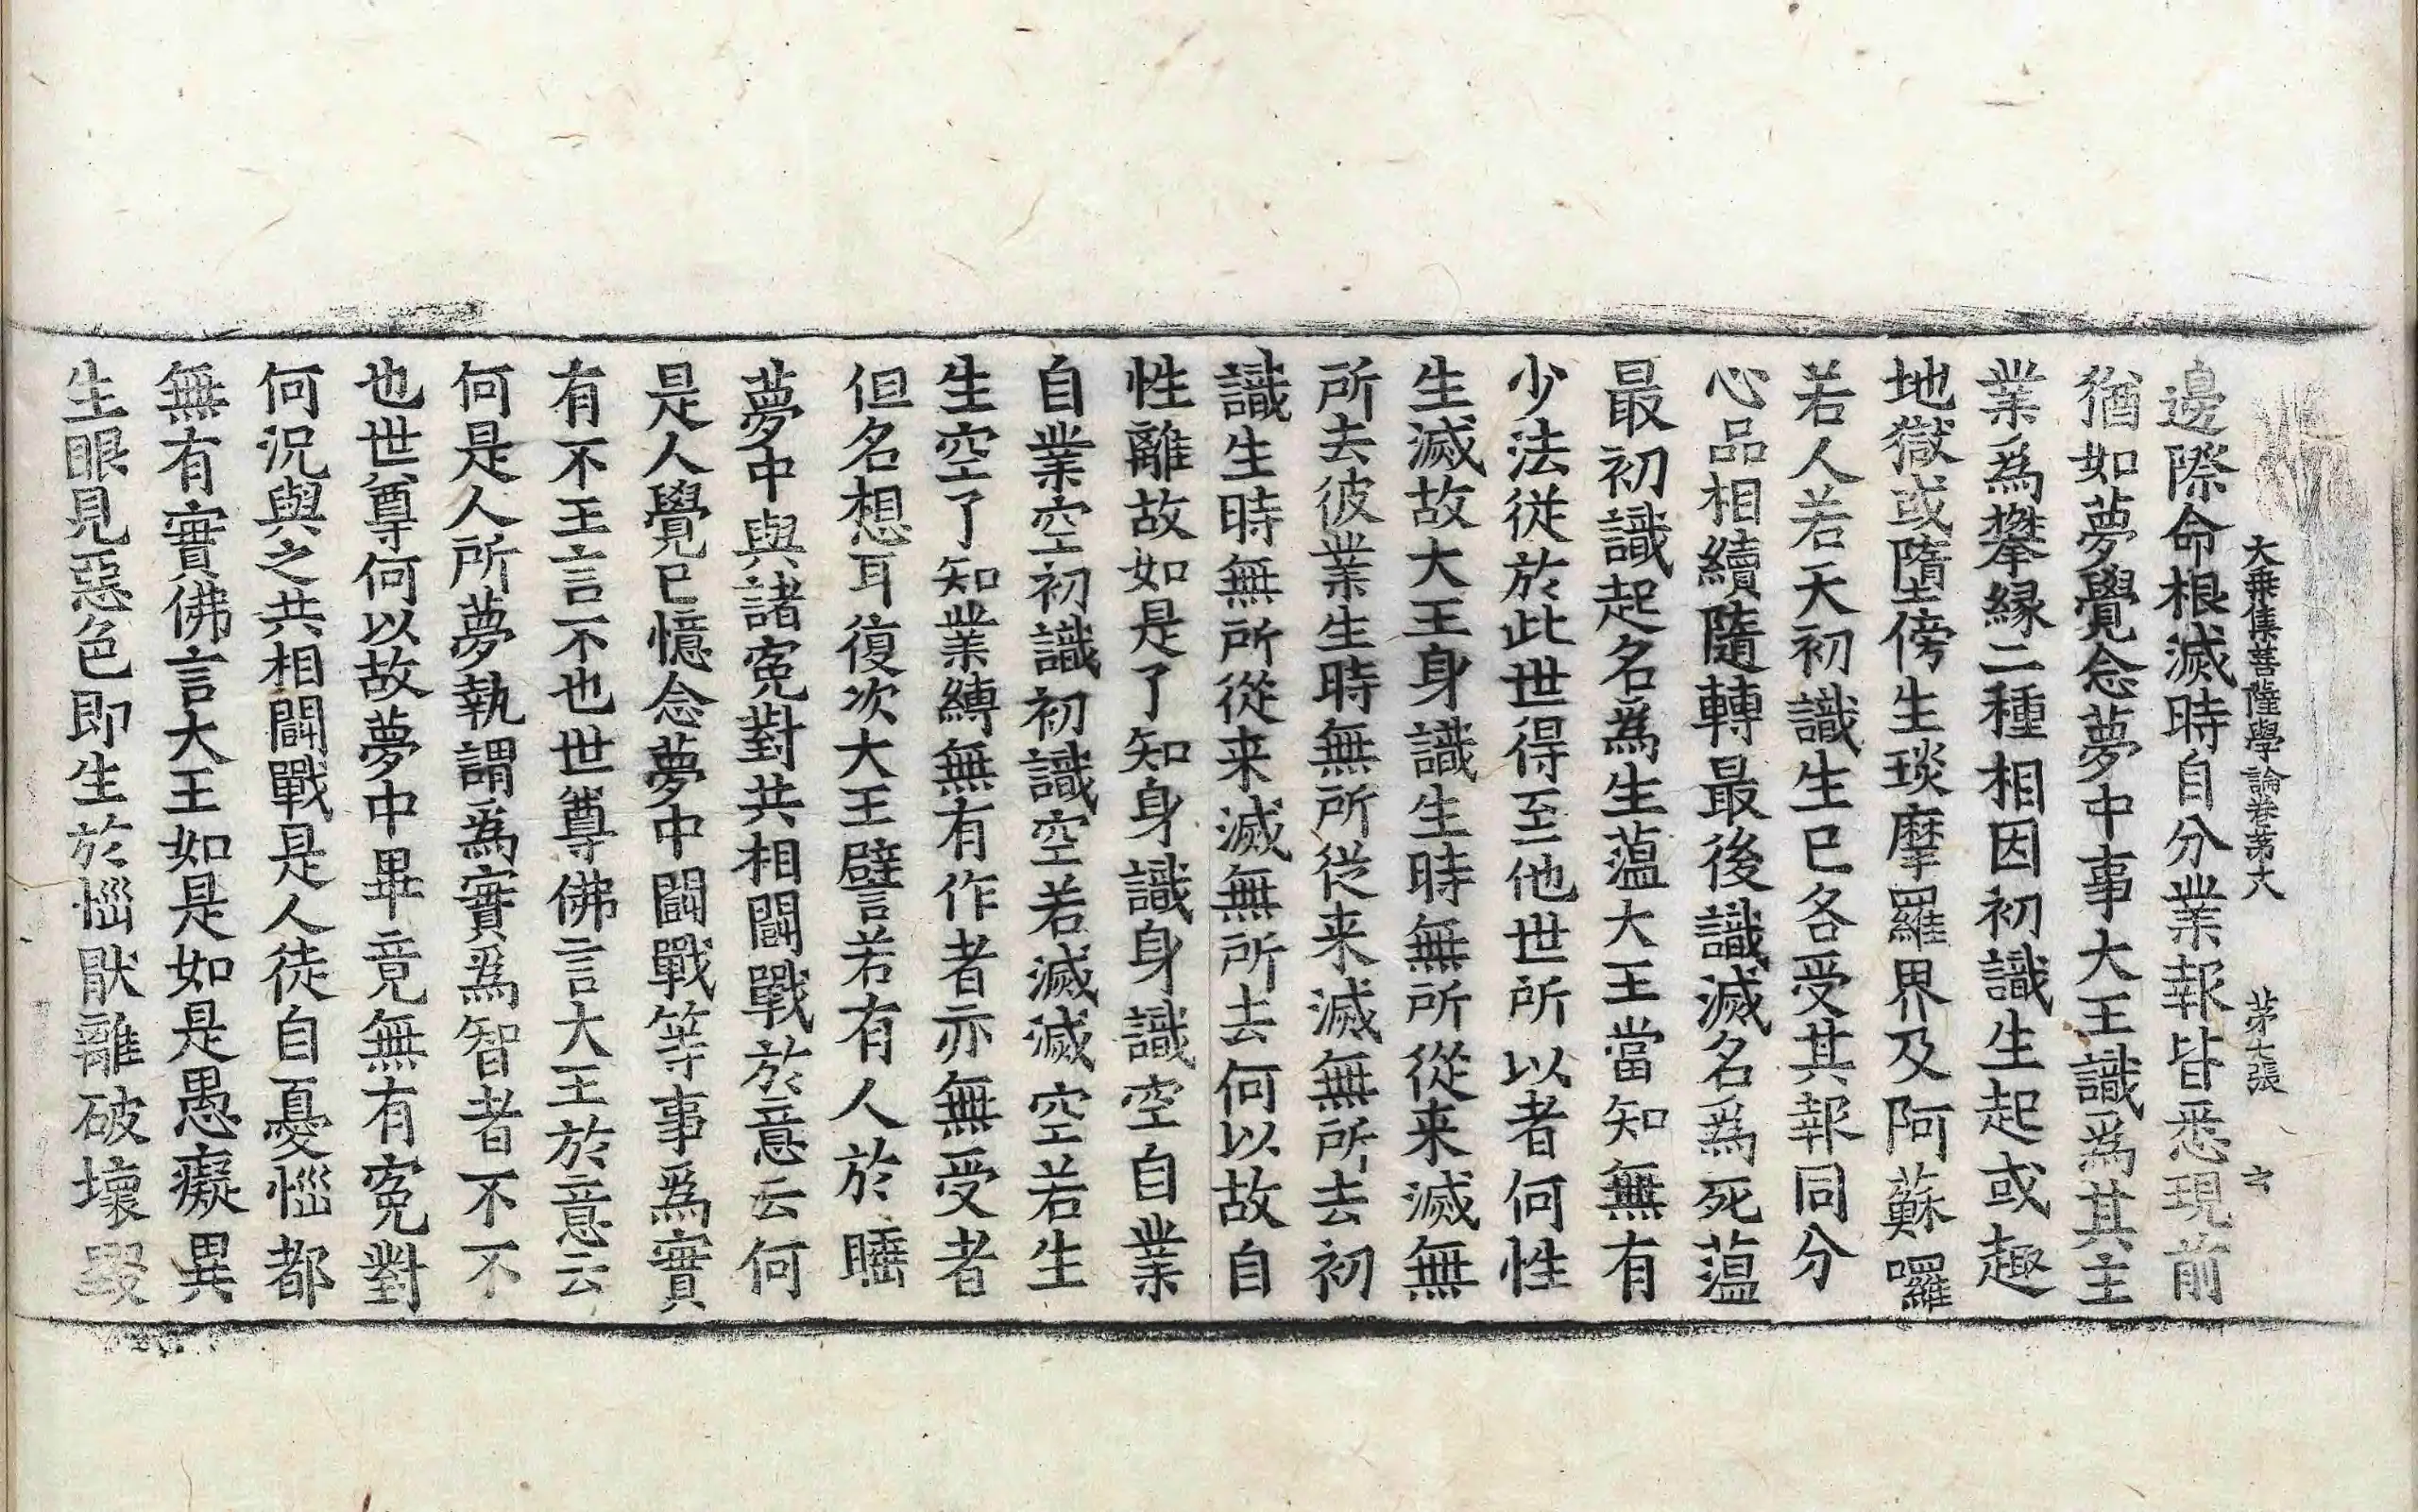 大乗集菩薩學論卷苐六 苐七張
邊際命根滅時自分業報皆悉現前
猶如夢覺念夢中事大王識爲其主
業爲攀縁二種相因初識生起或趣
地獄或墮傍生琰摩羅界及阿蘇囉
若人若天初識生已各受其報同分
心品相續隨轉最後識滅名爲死蘊
最初識起名爲生蘊大王當知無有
少法從於此世得至他世所以者何性
生滅故大王身識生時無所從来滅無
所去彼業生時無所從来滅無所去初
識生時無所從来滅無所去何以故自
性離故如是了知身識身識空自業
自業空初識初識空若滅滅空若生
生空了知業縛無有作者亦無受者
但名想耳復次大王譬若有人於睡
夢中與諸寃對共相鬪戰於意云何
是人覺已憶念夢中鬪戰等事爲實
有不王言不也世尊佛言大王於意云
何是人所夢執謂爲實爲智者不不
也世尊何以故夢中畢竟無有寃對
何況與之共相鬪戰是人徒自憂惱都
無有實佛言大王如是如是愚癡異
生眼見惡色即生於惱猒離破壞毀